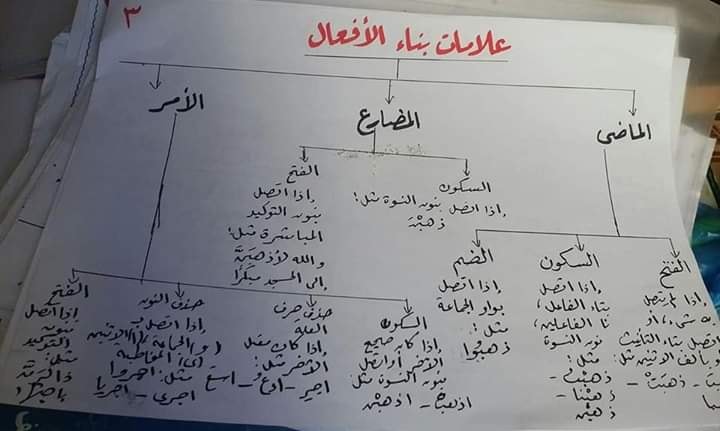 ٣
علامات بناء الأفعال
الماضى
المضارع
الأمر
الفتح
إذا لم يتصل
به شىء، أو
اتصل بتاء التأنيث
أو بألف الاثنين مثل:
ذهبَتْ
السكون
إذا اتصل
بتاء الفاعل،
نا الفاعلين،
نون النسوة
مثل:
ذهبْتُ -
ذهبْنا -
ذهبْنَ
الضم
إذا اتصل
بواو الجماعة
مثل:
ذهبُوا
السكون
إذا اتصل بنون النسوة مثل:
ذهبْنَ
الفتح
إذا اتصل
بنون التوكيد
المباشرة مثل:
والله لأذهبَنَّ
إلى المسجد مبكرًا
السكون
إذا كان صحيح
الآخر أو اتصل
بنون النسوة مثل:
اذهبْ - اذهبْن
حذف حرف
العلة
إذا كان معتل
الآخر مثل:
ادعُ - اسعَ
حذف النون
إذا اتصل بـ
(و) الجماعة / (ا) الاثنين
(ى) المخاطبة
مثل: اجروا
اجرى - اجريا
الفتح
إذا اتصل
بنون
التوكيد
مثل:
ذاكرَنَّ